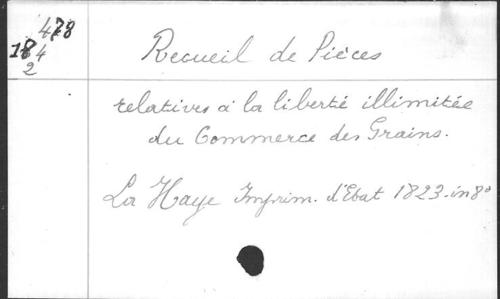 478
184
2
Recueil de Pièces
relatives à la liberté illimitée
du Commerce des Grains.
La Haye Imprim. d'Etat 1823. in 8°